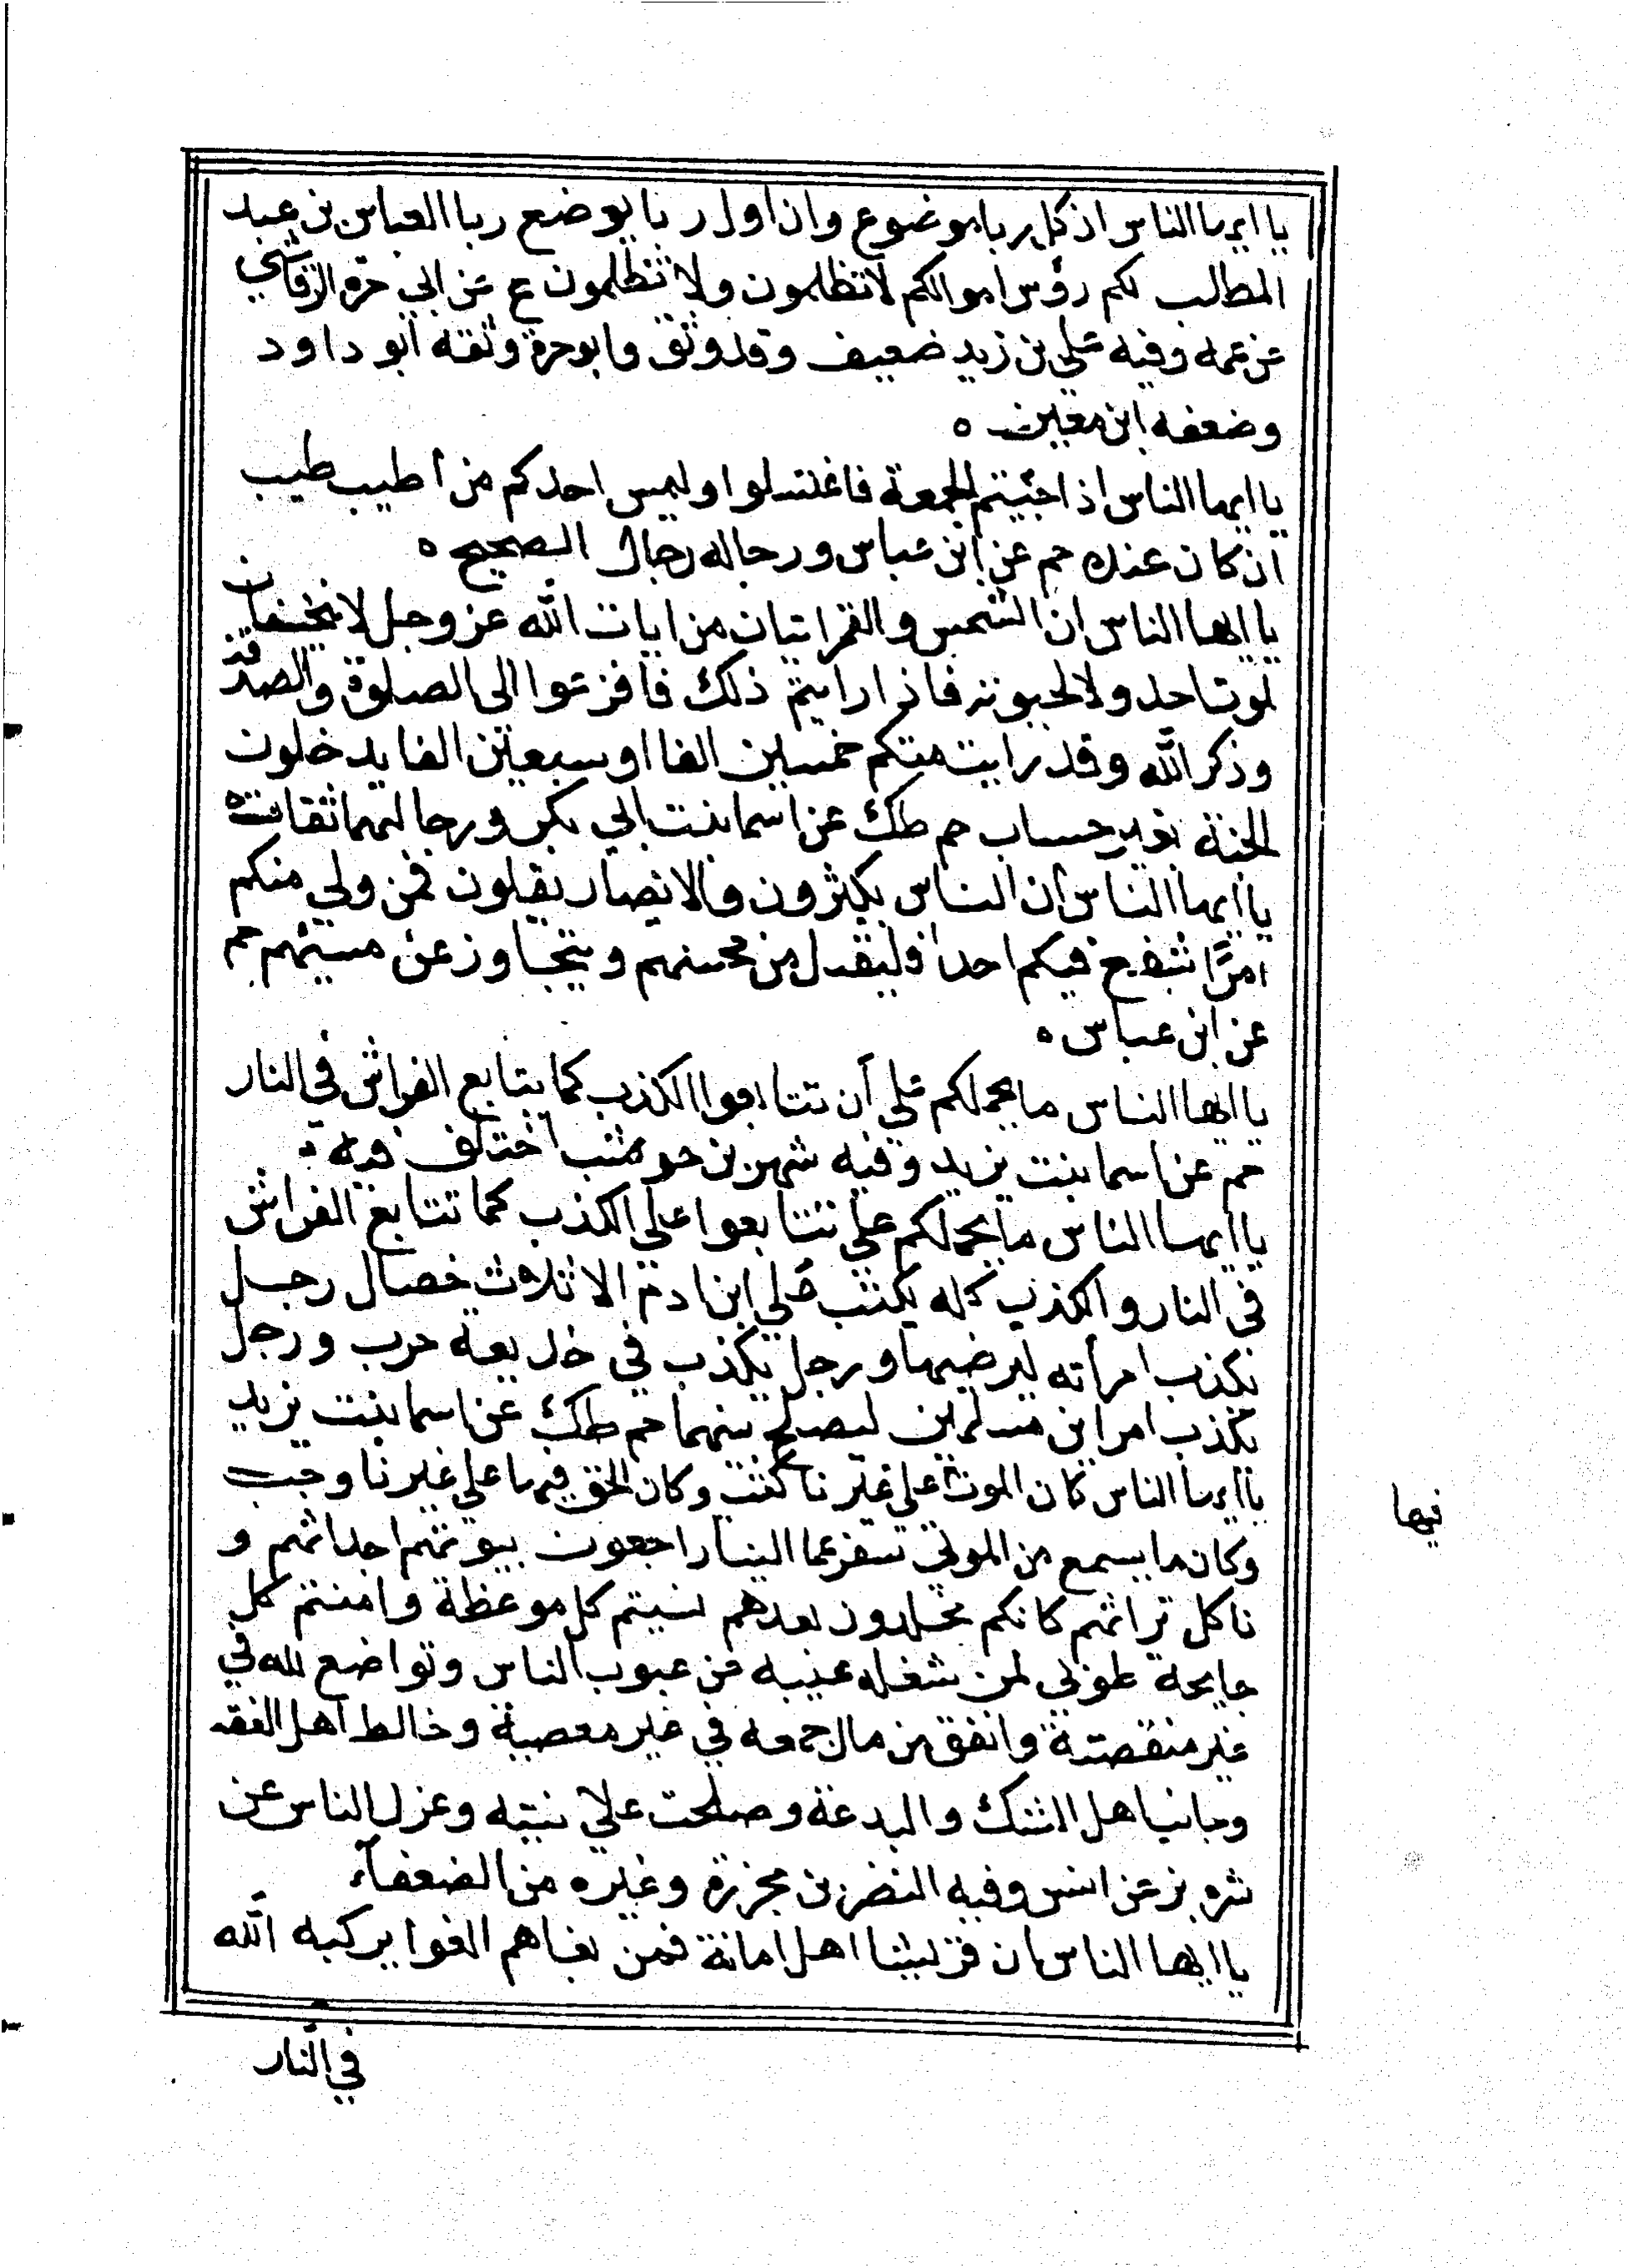 يا ايها الناس ان كل ربا موضوع وان اول ربا يوضع ربا العباس بن عبد
المطلب لكم رؤس اموالكم لا تظلمون ولا تظلمون ع عن ابي حرة الرقاشي
عن عمه وفيه علي بن زيد ضعيف وقد وثق وابو حرة وثقه ابو داود
وضعفه ابن معين ه
يا ايها الناس اذا جئتم الجمعة فاغتسلوا وليمس احدكم من أطيب طيب
ان كان عنده حم عن ابن عباس ورجاله رجال الصحيح ه
يا ايها الناس ان الشمس والقمر ايتان من ايات الله عز وجل لا ينخسفان
لموت احد ولا لحيوته فاذا رايتم ذلك فافزعوا الى الصلوة والصدقة
وذكر الله وقد رايت منكم خمسين الفا او سبعين الفا يدخلون
الجنة بغير حساب حم طك عن اسما بنت ابي بكر ورجالهما ثقات ه
يا ايها الناس ان الناس يكثرون والانصار يقلون فمن ولي منكم
امرًا ينفع فيكم احدا فليقبل من محسنهم ويتجاوز عن مسيئهم حم
عن ابن عباس ه
يا ايها الناس ما يحملكم علي أن تتابعوا الكذب كما يتابع الفراش في النار
حم عن اسما بنت يزيد وفيه شهر بن حوشب اختلف فيه ه
يا ايها الناس ما يحملكم علي تتابعوا علي الكذب كما تتابع الفراش
في النار والكذب كله يكتب علي ابن ادم الا ثلاث خصال رجل
يكذب امرأته ليرضيها ورجل يكذب في خديعة حرب ورجل
يكذب امراين مسلمين ليصلح بينهما حم طك عن اسما بنت يزيد
يا ايها الناس كان الموت علي غيرنا كتب وكان الحق فيها علي غيرنا وجب
فيها
وكان ما يسمع من الموتي سفر عما الينا راجعون بيوتهم اجداثهم و
ناكل تراثهم كانكم مخلدون بعدهم نسيتم كل موعظة وامنتم كل
جايحة طوبي لمن شغله عيبه عن عيوب الناس وتواضع لله في
غير منقصة وانفق من مال جمعه في غير معصية وخالط اهل الفقه
وجانب اهل الشك والبدعة وصلحت علانيته وعزل الناس عن
شره بز عن انس وفيه النضر بن محرزة وغيره من الضعفآء
يا ايها الناس ان قريشا اهل امانة فمن بغاهم العوا يركبه الله
في النار